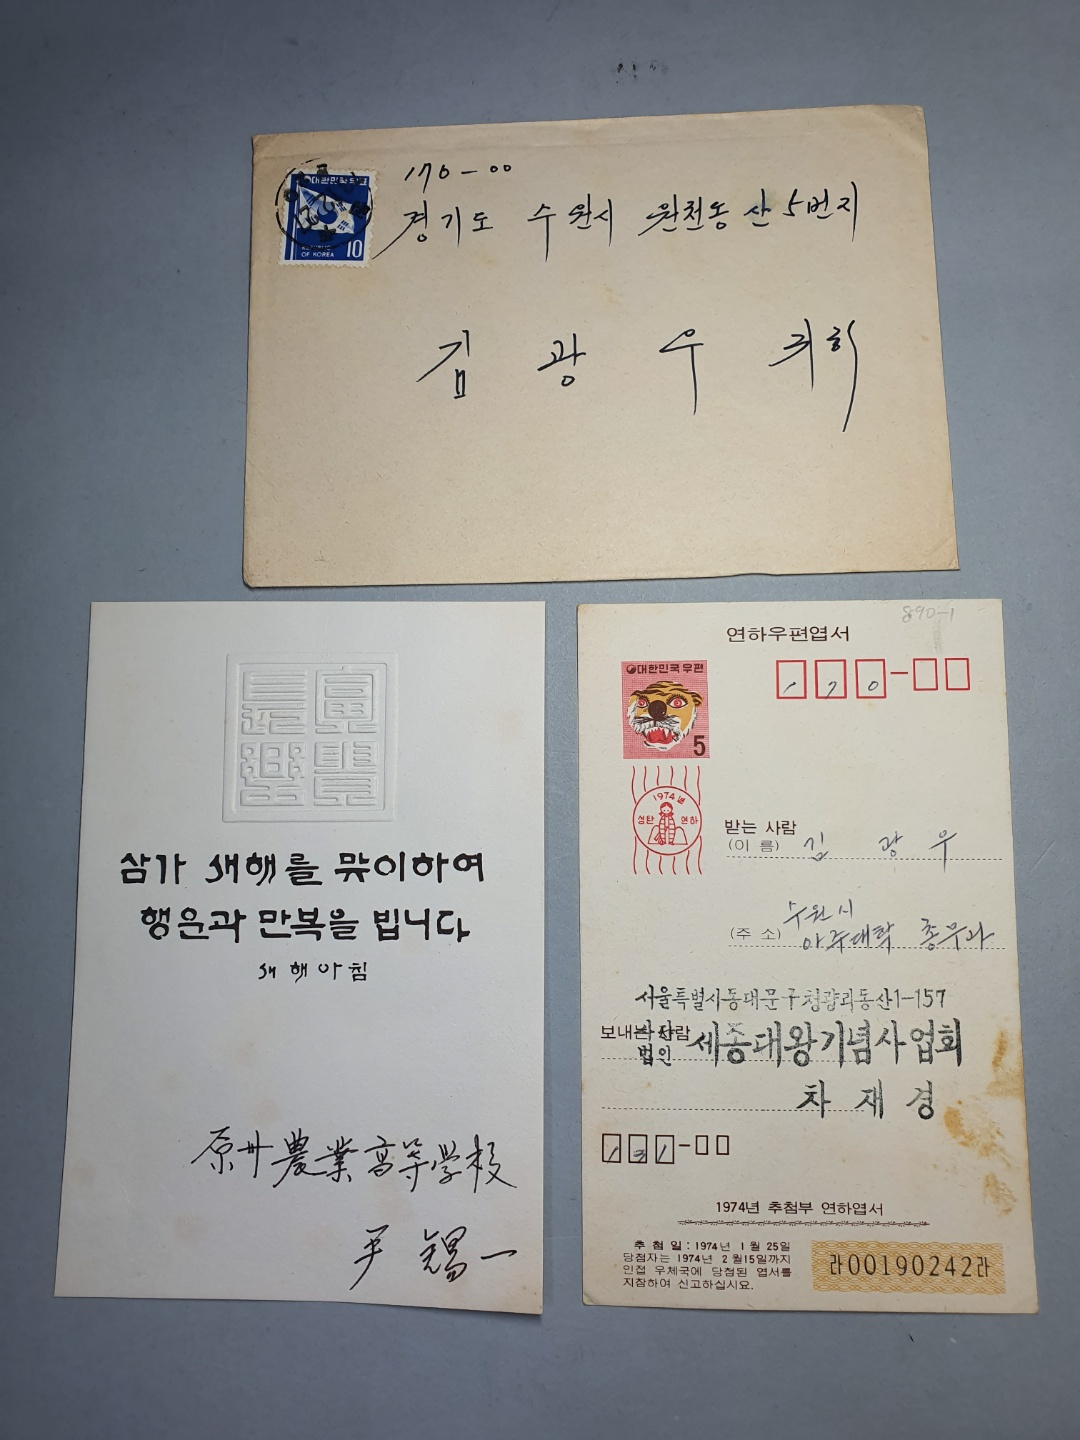 대한민국우표
REPUBLIC
OF KOREA
10
170-00
경기도 수원시 원천동 산 5번지
김 광 우 귀하
삼가 새해를 맞이하여
행운과 만복을 빕니다
새해아침
農業高等学校
尹 錫 一
890-1
연하우편엽서
대한민국우편
5
170-
1974년
성탄 연하
받는 사람
(이 름) 김 광 우
(주 소) 수원시
아주대학 총무과
서울특별시동대문구청량리동산1-157
보내는 사람
법인 세종대왕기념사업회
차 재 경
131-
1974년 추첨부 연하엽서
추 첨 일 : 1974년 1월 25일
당첨자는 1974년 2월15일까지
인접 우체국에 당첨된 엽서를
지참하여 신고하십시요.
라00190242라